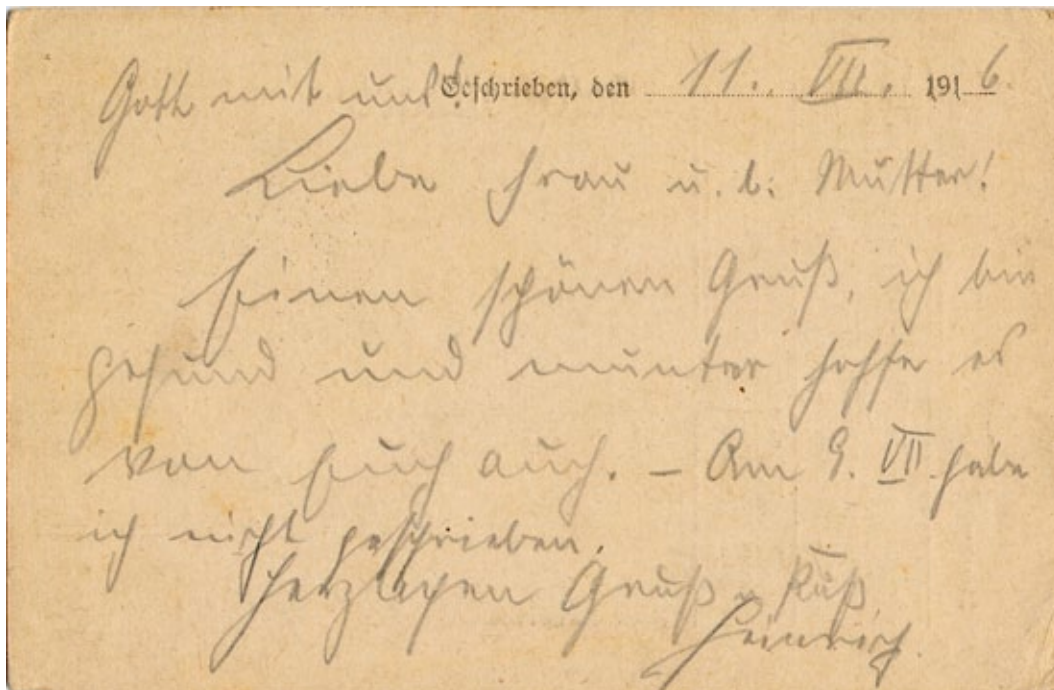 Gott mit uns! Geschrieben, den 11. VII. 1916.
Liebe Frau u. l. Mutter!
Einen schönen Gruß, ich bin
gesund und munter hoffe es
von Euch auch. – Am 9. VII. habe
ich nicht geschrieben.
Herzlichen Gruß u. Kuß
Heinrich.